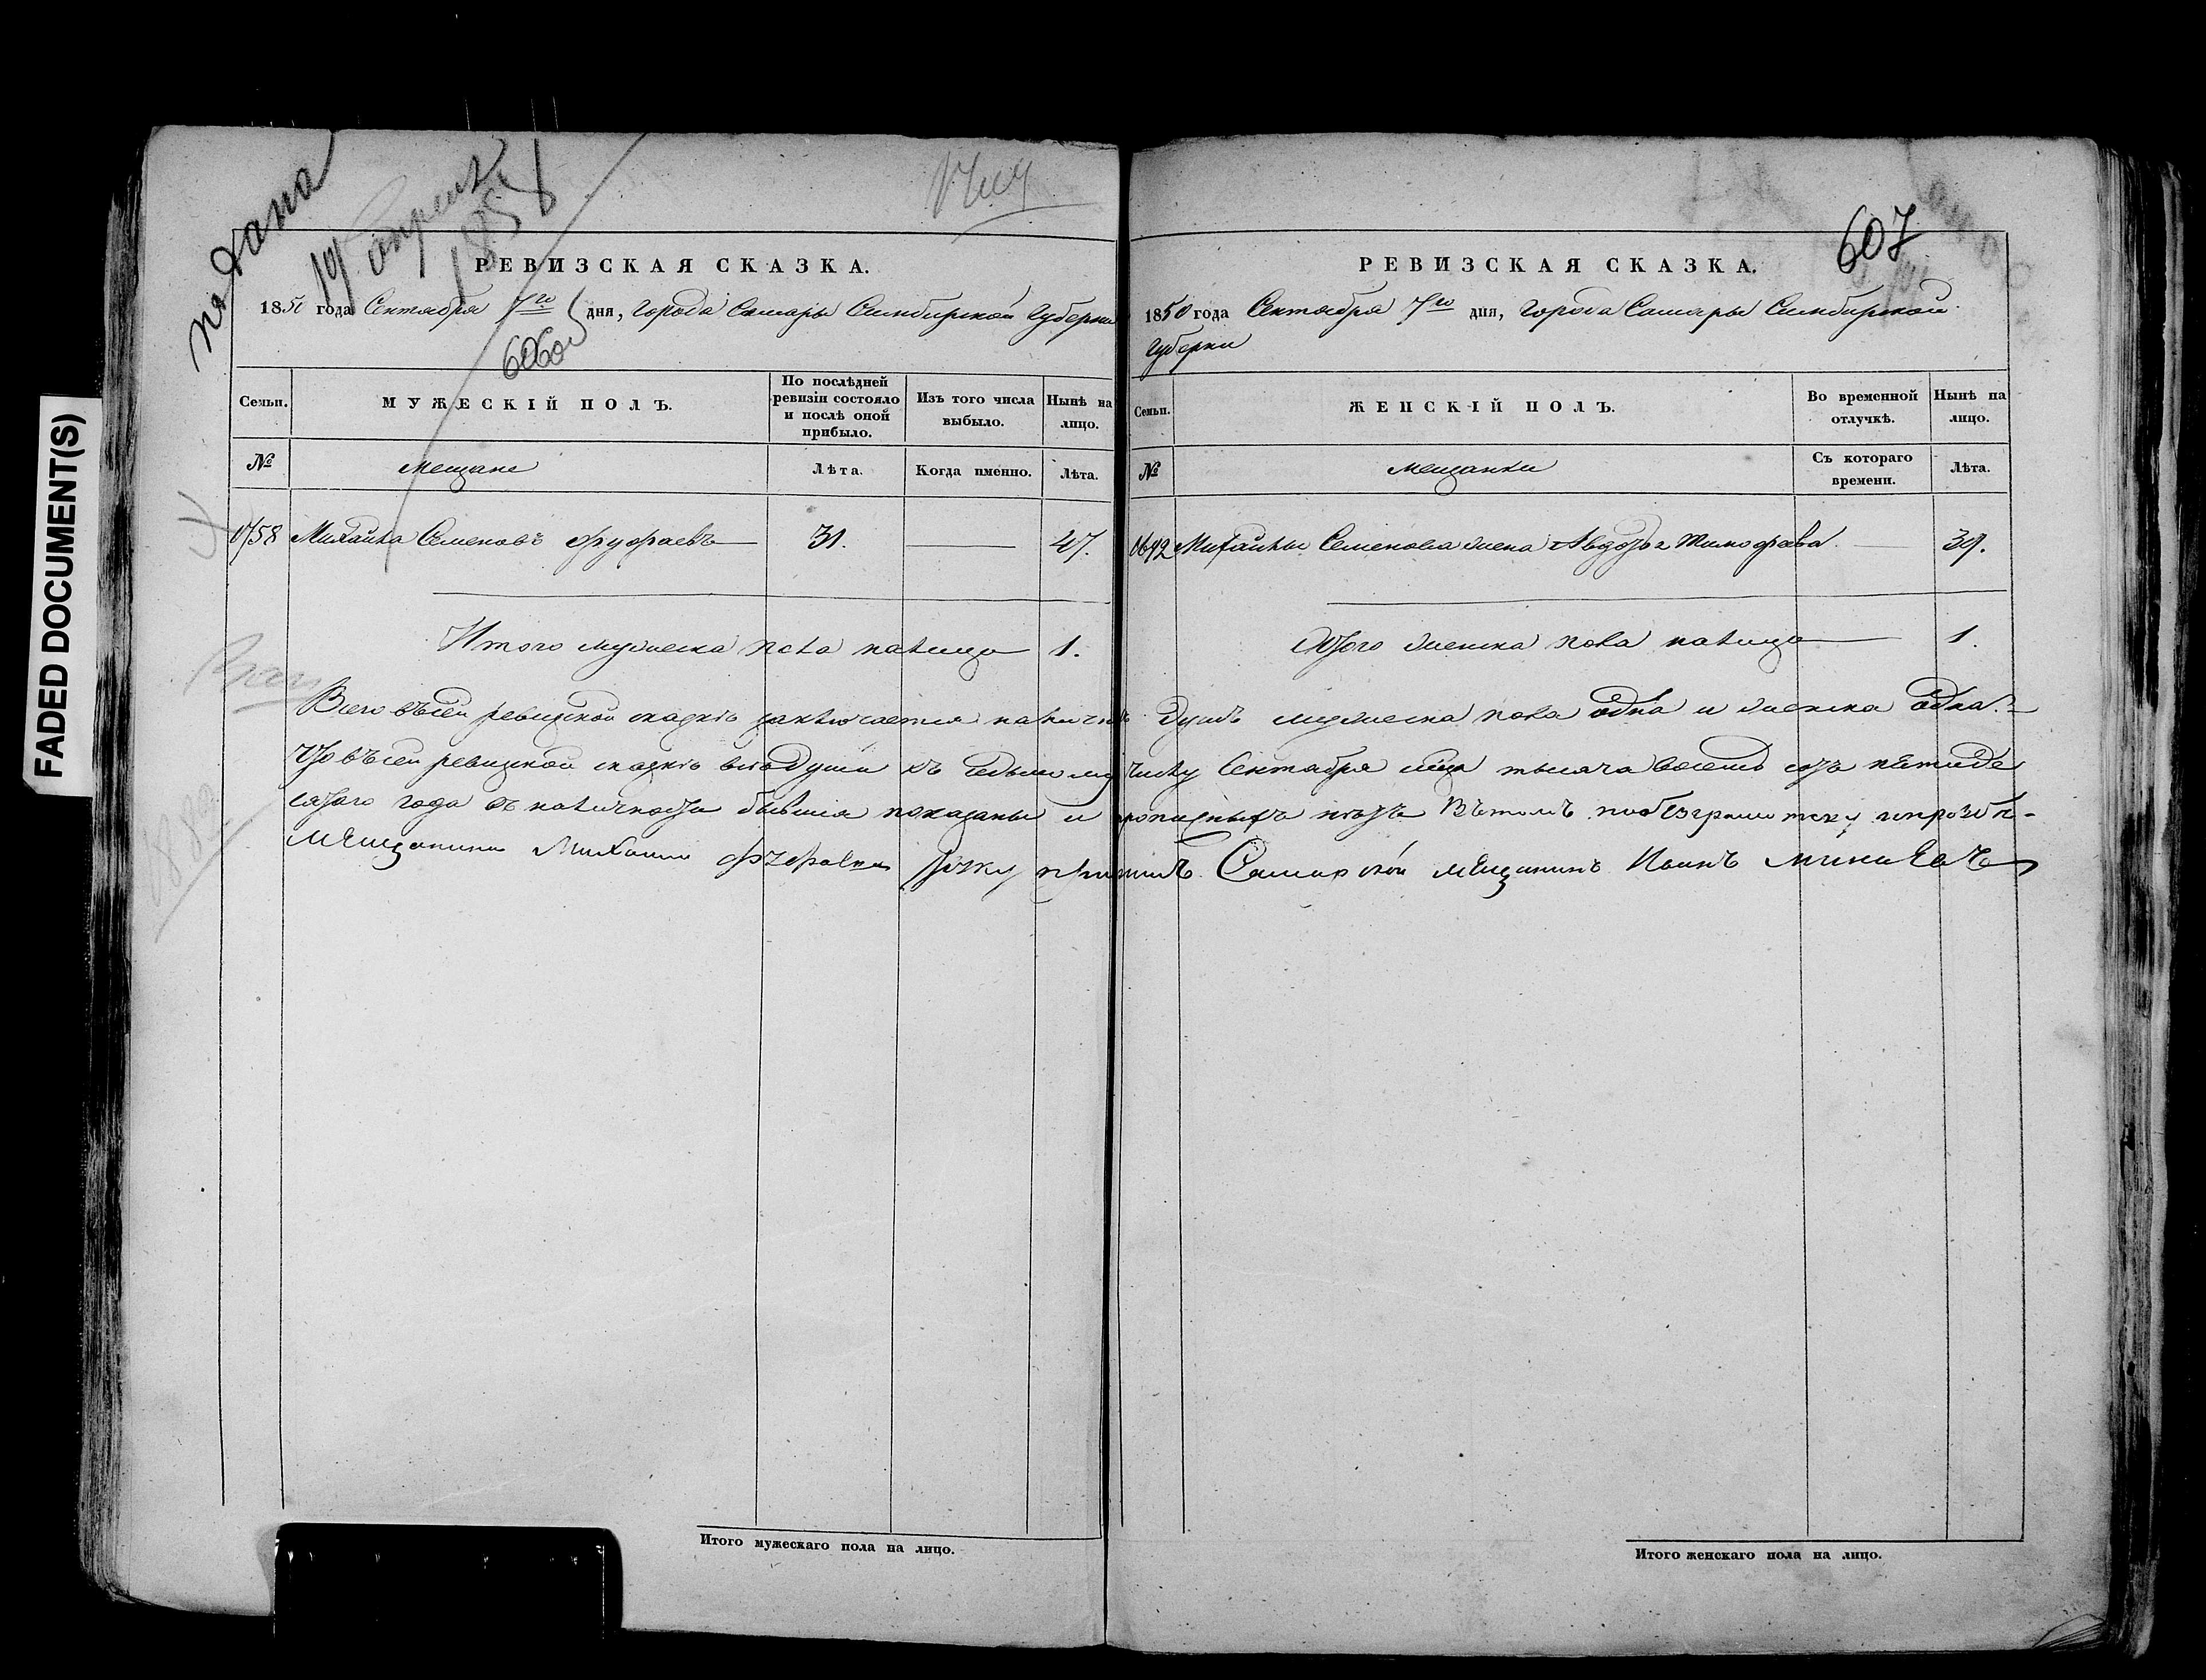 FADED DOCUMENT(S)
подана
19 Апреля
1858
РЕВИЗСКАЯ СКАЗКА.
1850 года Сентября 7го дня, города Самары Симбирской Губернии
606
Семьи. МУЖЕСКІЙ ПОЛЪ. По послѣдней ревизіи состояло и послѣ оной прибыло. Изъ того числа выбыло. Нынѣ на лицо.
№ мещане Лѣта. Когда именно. Лѣта.
1758 Михайла Семеновъ 31. 47.
Итого мужеска пола налицо 1.
607
РЕВИЗСКАЯ СКАЗКА.
1850 года Сентября 7го дня, города Самары Симбирской
Губернии
Семьи. ЖЕНСКІЙ ПОЛЪ. Во временной отлучкѣ. Нынѣ на лицо.
№ мещанки Съ котораго времени. Лѣта.
Михайлы Семенова жена Авдотья 39.
Итого женска пола налицо 1.
Всего въсей ревизской сказкѣ заключается наличныхъ душъ мужеска пола одна и женска одна.
Что въсей ревизской сказкѣ все души къ седьмому числу Сентября мца тысяча восемь сотъ пятиде
сятого года въ наличности бывшия показаны и прописныхъ нетъ Вътомъ побезграмотству
мещанина Михаила руку приложилъ Самарской мещанинъ Иванъ
Итого мужескаго пола на лицо.
Итого женскаго пола на лицо.